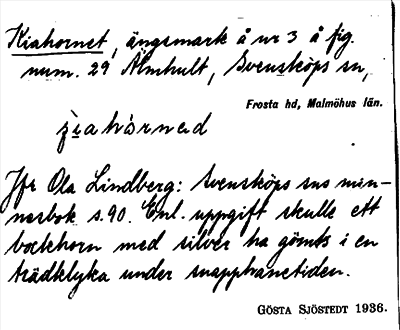 Kiahornet, ängsmark å nr 3 å fig.
num. 29 Älmhult, Svensköps sn,
Frosta hd, Malmöhus län.
Jfr Ola Lindberg: Svensköps sns min-
nesbok s. 90. Enl. uppgift skulle ett
bockhorn med silver ha gömts i en
trädklyka under snapphanetiden.
GÖSTA SJÖSTEDT 1936.